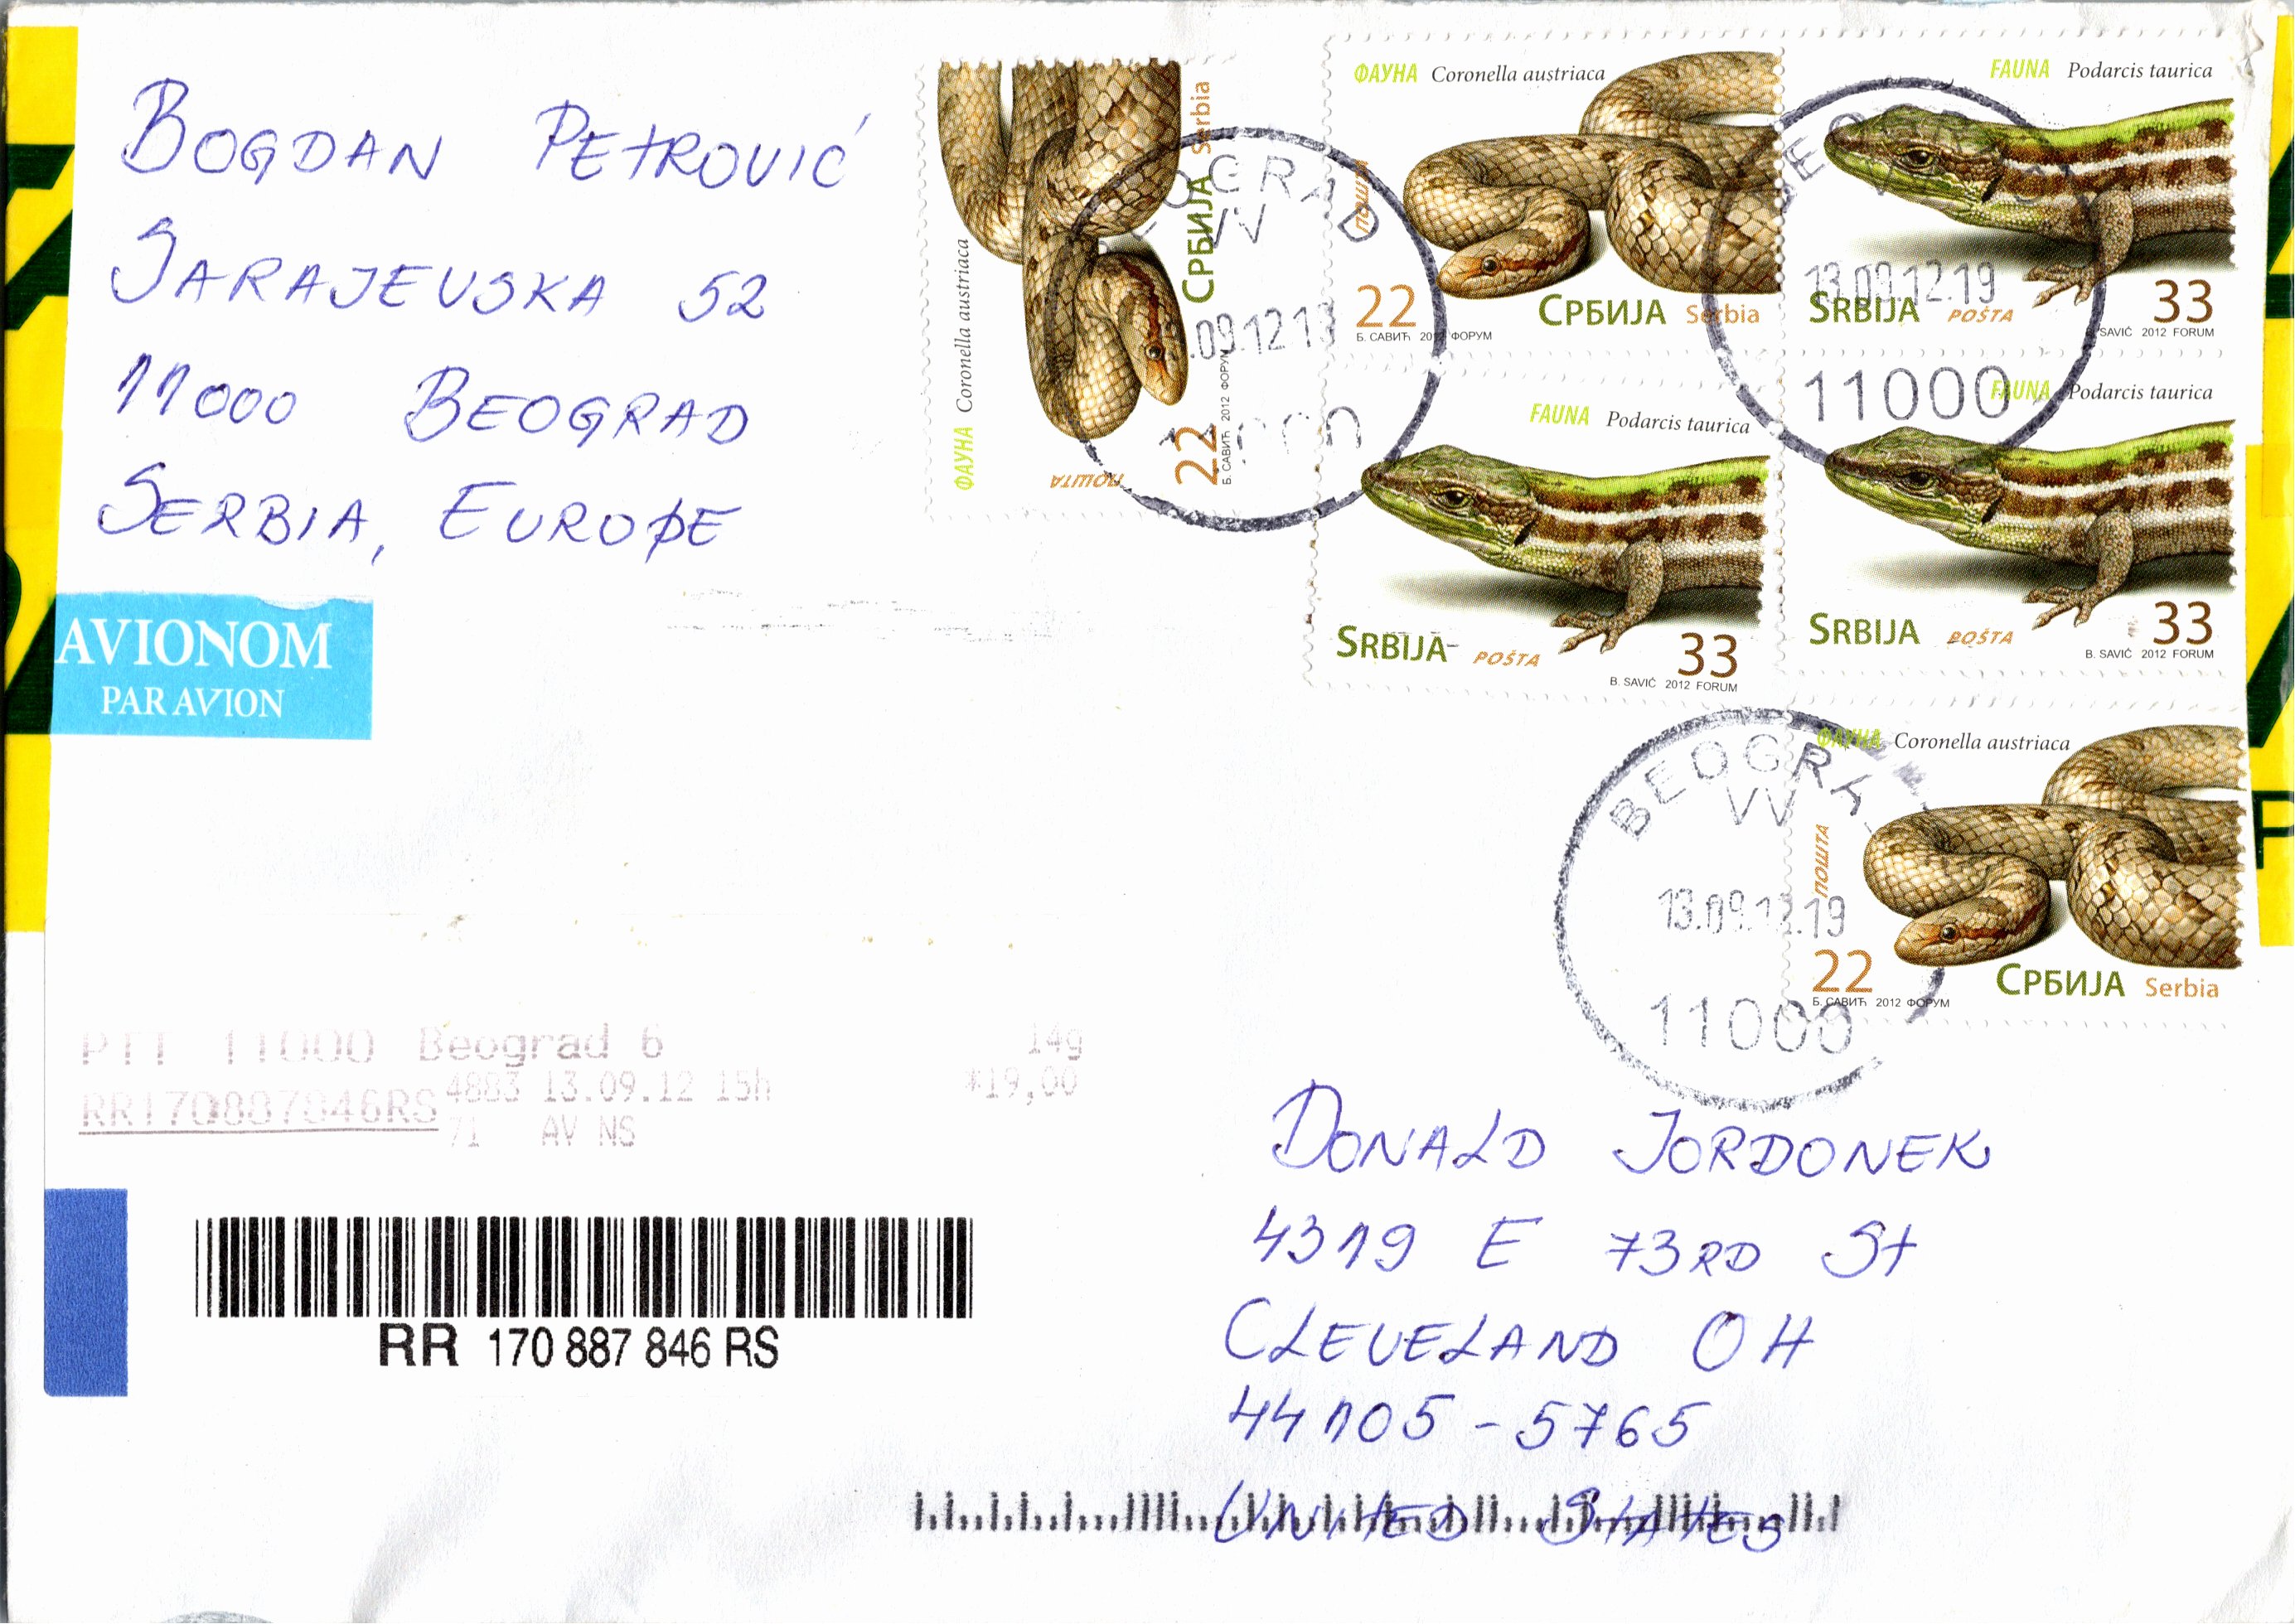 BOGDAN PETROVIĆ
SARAJEVSKA 52
11000 BEOGRAD
SERBIA, EUROPE
AVIONOM
PAR AVION
ФАУНА Coronella austriaca
ПОШТА
22
СРБИЈА Serbia
Б. САВИЋ 2012 ФОРУМ
BEOGRAD
VV
.09.12.13
ФАУНА Coronella austriaca
ПОШТА
22
СРБИЈА Serbia
Б. САВИЋ 2012 ФОРУМ
FAUNA Podarcis taurica
SRBIJA POŠTA 33
B. SAVIĆ 2012 FORUM
13.09.12.19
11000
FAUNA Podarcis taurica
SRBIJA POŠTA 33
B. SAVIĆ 2012 FORUM
FAUNA Podarcis taurica
SRBIJA POŠTA 33
B. SAVIĆ 2012 FORUM
ФАУНА Coronella austriaca
ПОШТА
22
СРБИЈА Serbia
Б. САВИЋ 2012 ФОРУМ
BEOGRA
VV
13.09.12.19
11000
PTT 11000 Beograd 6 14g
RR170887846RS 4883 13.09.12 15h *19,00
71 AV NS
RR 170 887 846 RS
DONALD JORDONEK
4319 E 73RD St
CLEVELAND OH
44105-5765
UNITED STATES